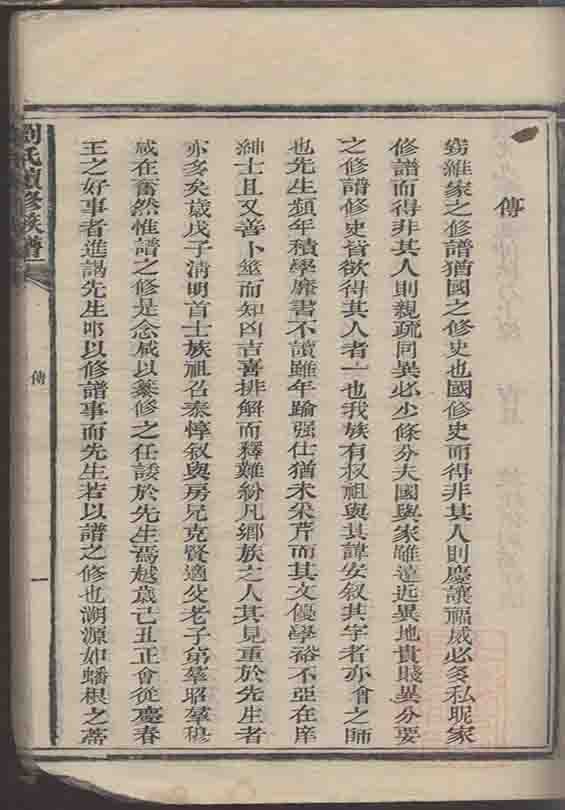 傳
竊維家之修譜猶國之修史也國修史而得非其人則慶讓福威必多私昵家
修譜而得非其人則親疏同異必少條分夫國與家雖遠近異地貴賤異分要
之修譜修史皆欲得其人者一也我族有叔祖與其諱安叙其字者亦會之師
也先生頻年積學靡書不讀雖年踰强仕猶未采芹而其文優學裕不亞在庠
紳士且又善卜筮而知凶吉喜排解而釋難紛凡鄉族之人其見重於先生者
亦多矣歲戊子清明首士族祖召泰惇叙與房兄克賢適父老子弟羣昭羣穆
咸在奮然惟譜之修是念咸以纂修之任諉於先生焉越歲己丑正會從慶春
王之好事者進謁先生叩以修譜事而先生若以譜之修也溯源如蟠根之蒂
劉氏續修族譜
傳
一